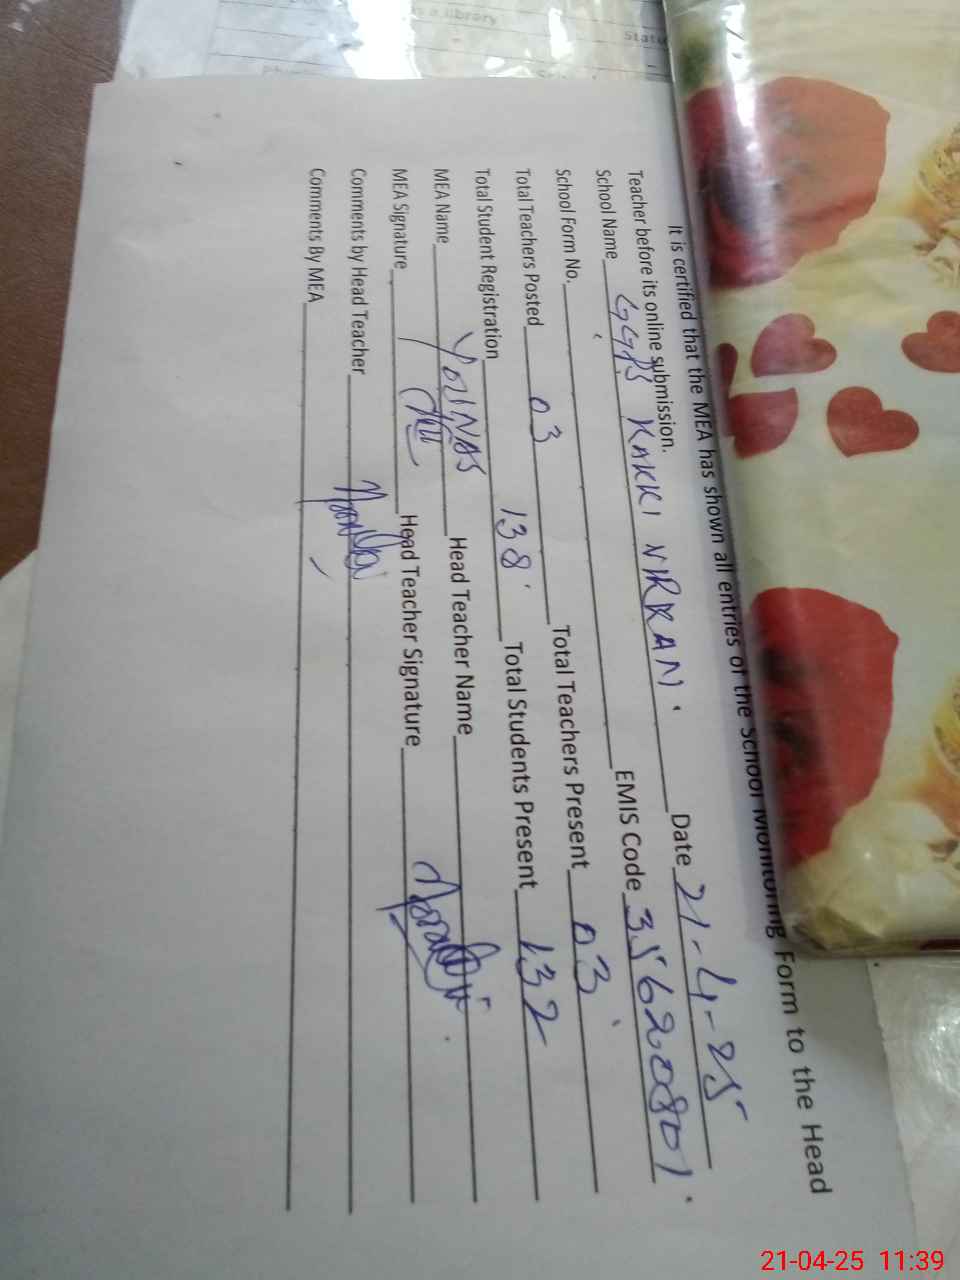 a library
Statu
It is certified that the MEA has shown all entries of the School Monitoring Form to the Head
Teacher before its online submission.
School Name GGPS KAKKI NIKKAN. Date 21-4-25
School Form No. EMIS Code 35620801.
Total Teachers Posted 03 Total Teachers Present 03
Total Student Registration 138 Total Students Present 132
MEA Name YOUNAS Head Teacher Name
MEA Signature Head Teacher Signature
Comments by Head Teacher
Comments By MEA
21-04-25 11:39